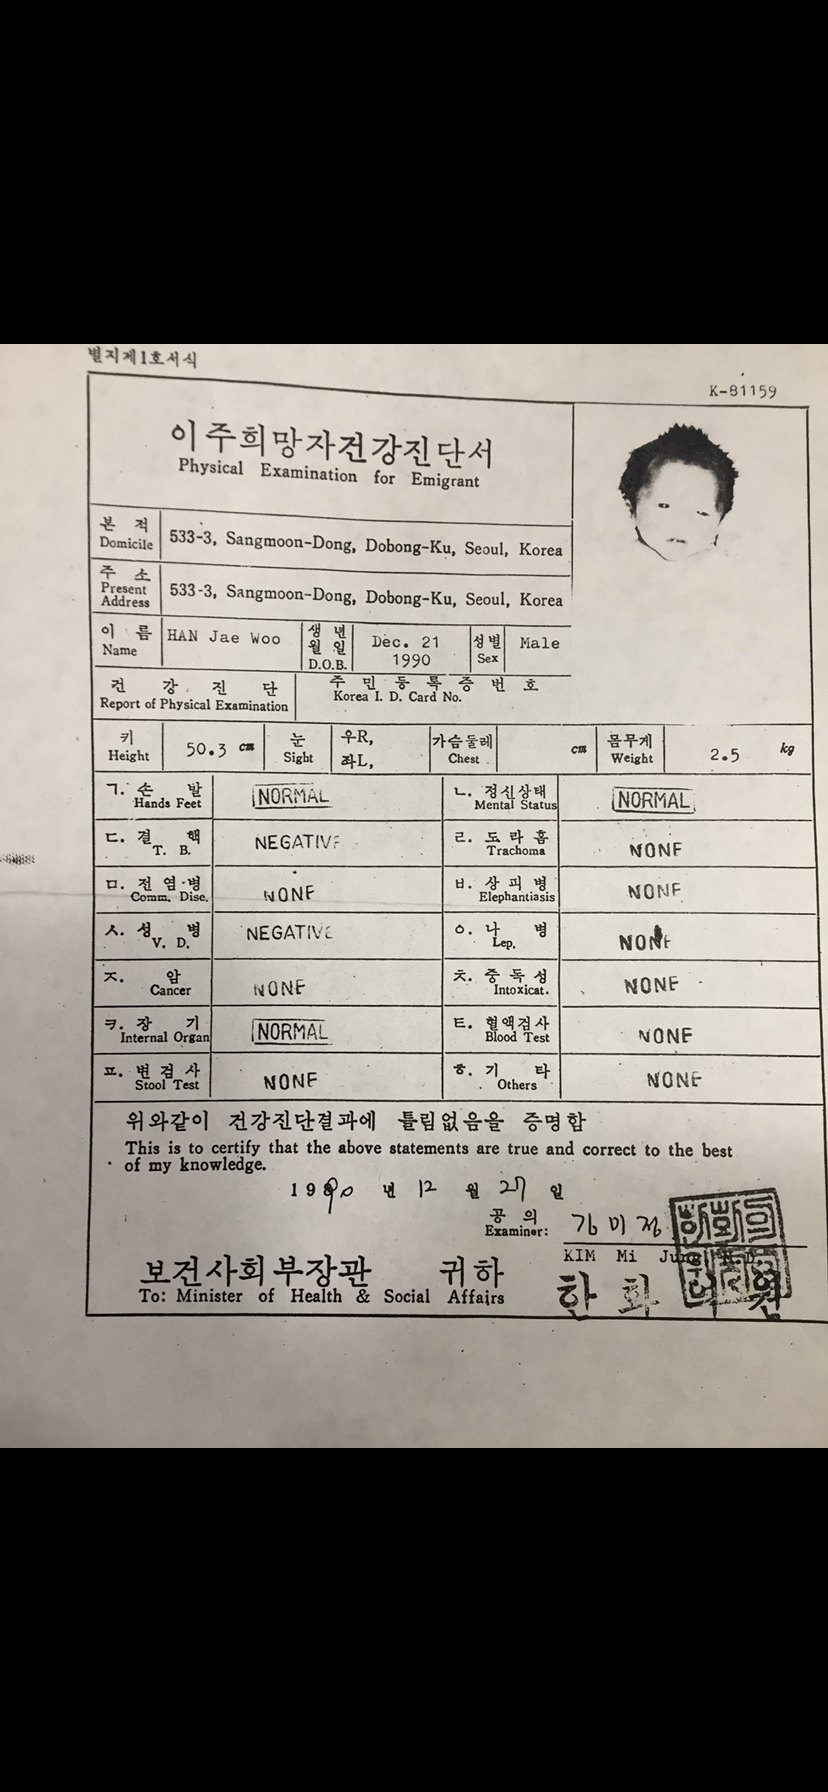 별지제1호서식
K-81159
이주희망자건강진단서
Physical Examination for Emigrant
본 적
Domicile
533-3, Sangmoon-Dong, Dobong-Ku, Seoul, Korea
주 소
Present Address
533-3, Sangmoon-Dong, Dobong-Ku, Seoul, Korea
이 름
Name
HAN Jae Woo
생 년 월 일
D.O.B.
Dec. 21 1990
성별
Sex
Male
건 강 진 단
Report of Physical Examination
주 민 등 록 증 번 호
Korea I. D. Card No.
키
Height
50.3 cm
눈
Sight
우R,
좌L,
가슴둘레
Chest
cm
몸무게
Weight
2.5 kg
ㄱ. 손 발
Hands Feet
NORMAL
ㄴ. 정신상태
Mental Status
NORMAL
ㄷ. 결 핵
T. B.
NEGATIVE
ㄹ. 도 라 홈
Trachoma
NONE
ㅁ. 전 염 병
Comm. Dise.
NONE
ㅂ. 상 피 병
Elephantiasis
NONE
ㅅ. 성 병
V. D.
NEGATIVE
ㅇ. 나 병
Lep.
NONE
ㅈ. 암
Cancer
NONE
ㅊ. 중 독 성
Intoxicat.
NONE
ㅋ. 장 기
Internal Organ
NORMAL
ㅌ. 혈액검사
Blood Test
NONE
ㅍ. 변 검 사
Stool Test
NONE
ㅎ. 기 타
Others
NONE
위와같이 건강진단결과에 틀림없음을 증명함
This is to certify that the above statements are true and correct to the best
of my knowledge.
1990 년 12 월 27 일
공 의
Examiner:
김미정
KIM Mi Jung
보건사회부장관 귀하
To: Minister of Health & Social Affairs
한 화